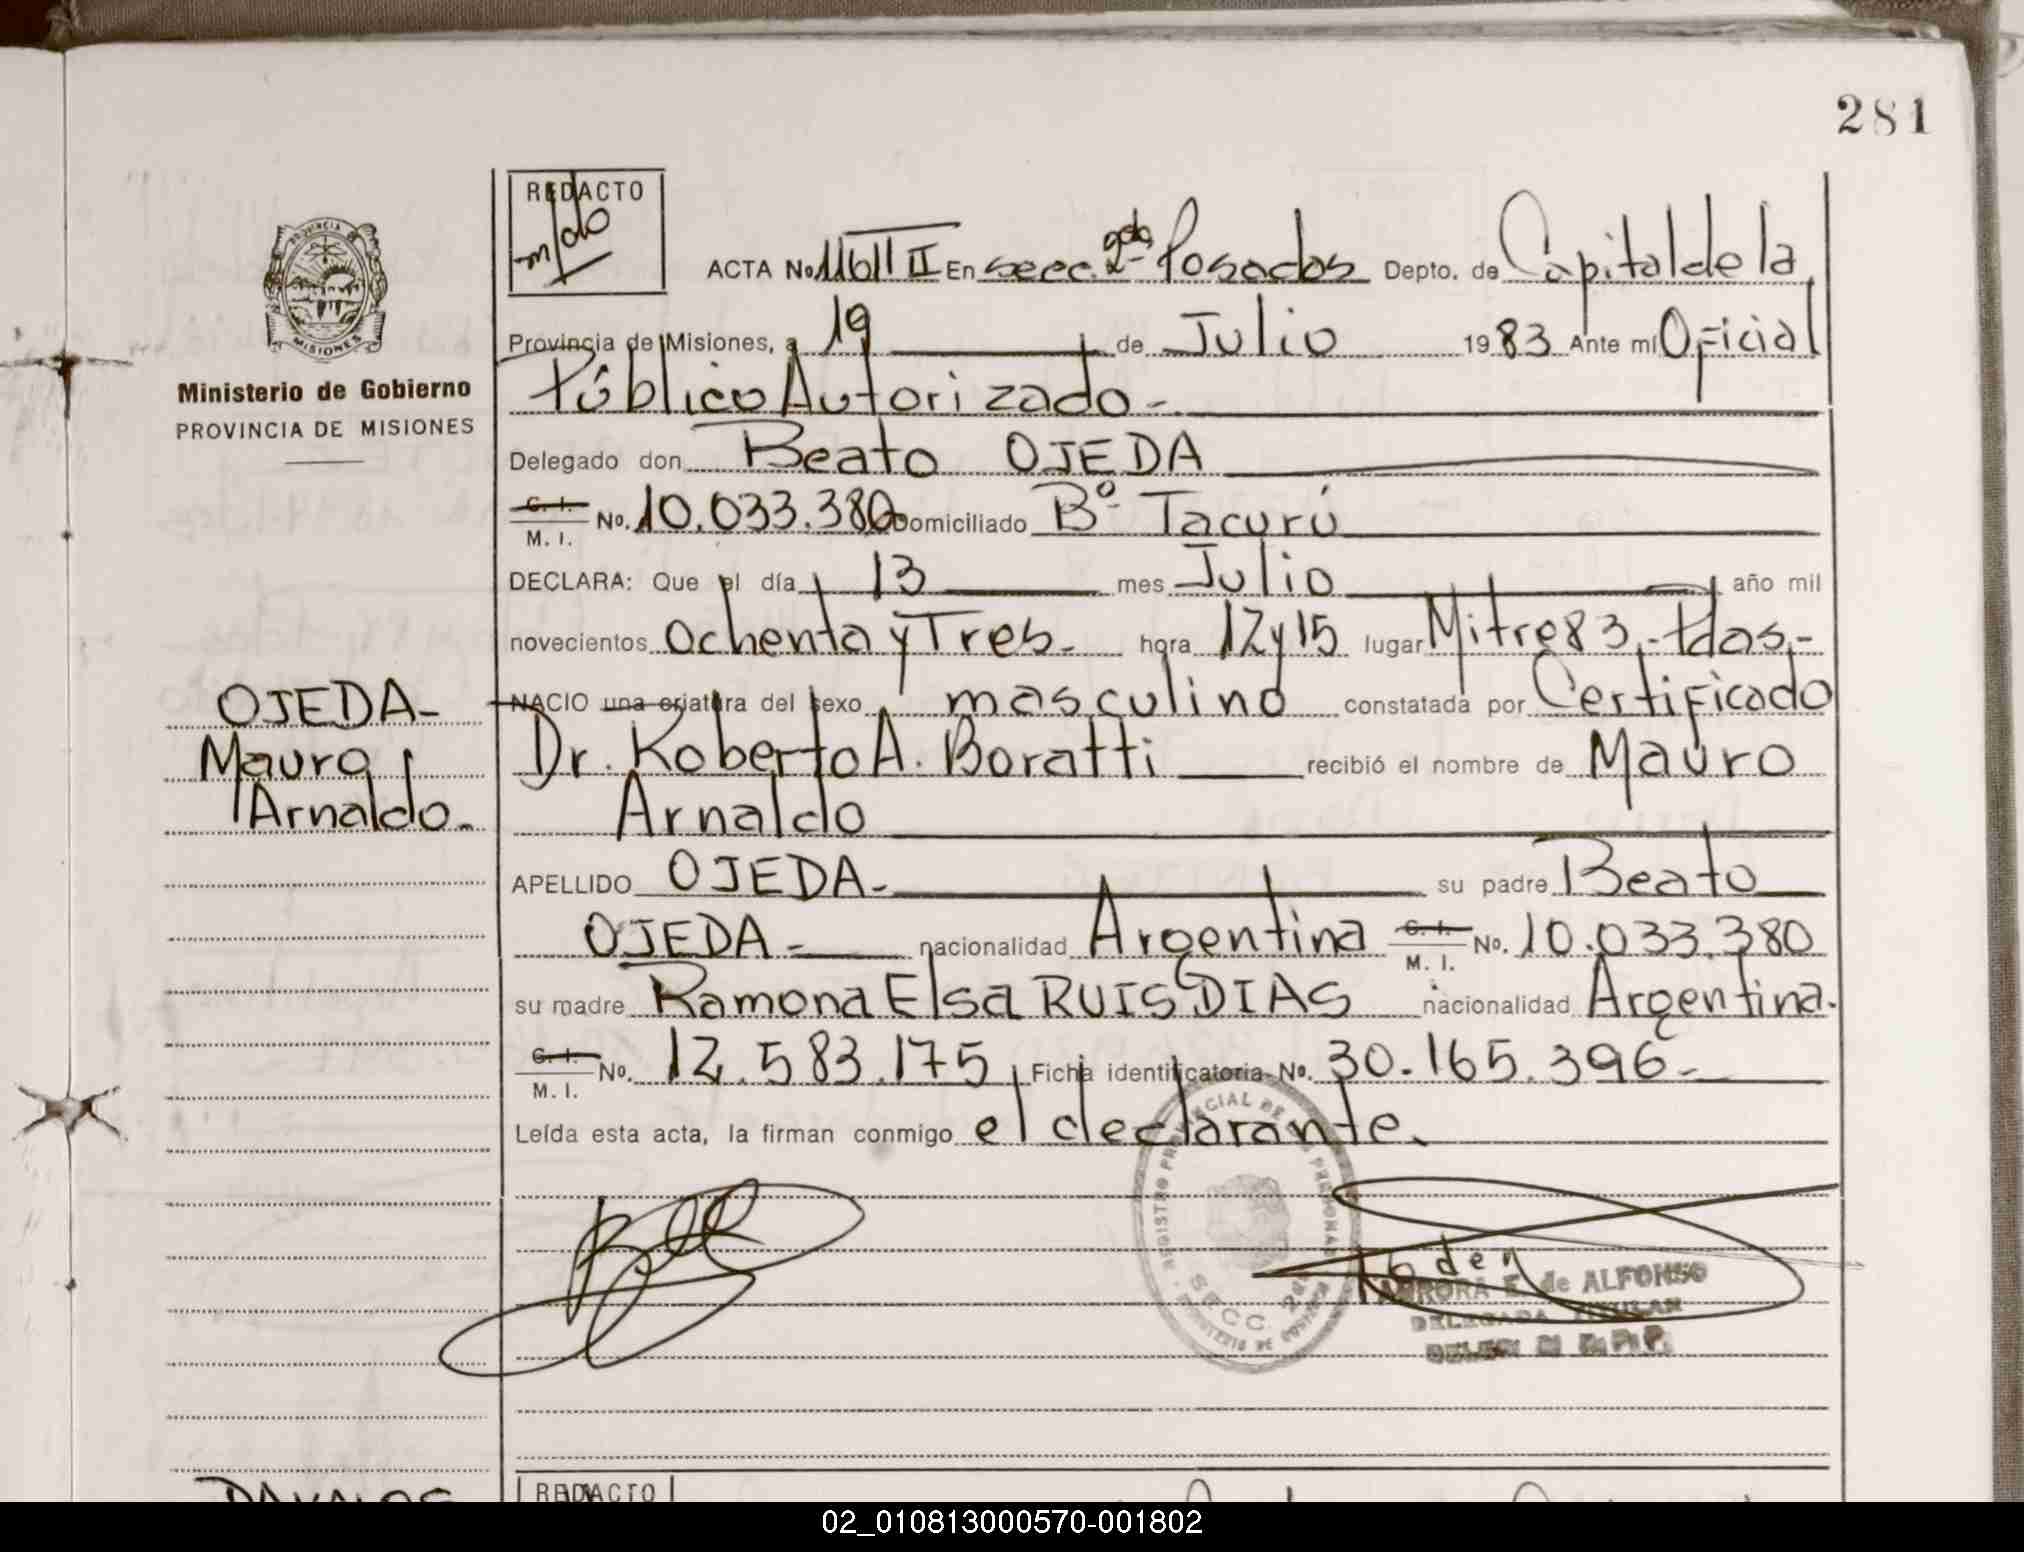 281
REDACTO
m/do
PROVINCIA DE
MISIONES
Ministerio de Gobierno
PROVINCIA DE MISIONES
ACTA No. 1161 II En secc. 2da Posadas Depto. de Capital de la
Provincia de Misiones, a 19 de Julio 1983 Ante mí Oficial
Público Autorizado-
Delegado don Beato OJEDA
C. I. M. I. No. 10.033.380 Domiciliado Bº Tacurú
DECLARA: Que el día 13 mes Julio año mil
novecientos Ochenta y Tres- hora 12 y 15 lugar Mitre 83,- Pdas,-
NACIO una criatura del sexo masculino constatada por Certificado
Dr. Roberto A. Boratti recibió el nombre de Mauro
Arnaldo
APELLIDO OJEDA- su padre Beato
OJEDA- nacionalidad Argentina C. I. M. I. No. 10.033.380
su madre Ramona Elsa RUIS DIAS nacionalidad Argentina.
C. I. M. I. No. 12.583.175 Ficha identificatoria No. 30.165.396-
Leída esta acta, la firman conmigo el declarante.
OJEDA-
Mauro
Arnaldo.-
REGISTRO PROVINCIAL DE LAS PERSONAS
SECC. 2da
AURORA E. de ALFONSO
DELEGADA TITULAR
REDACTO
02_010813000570-001802